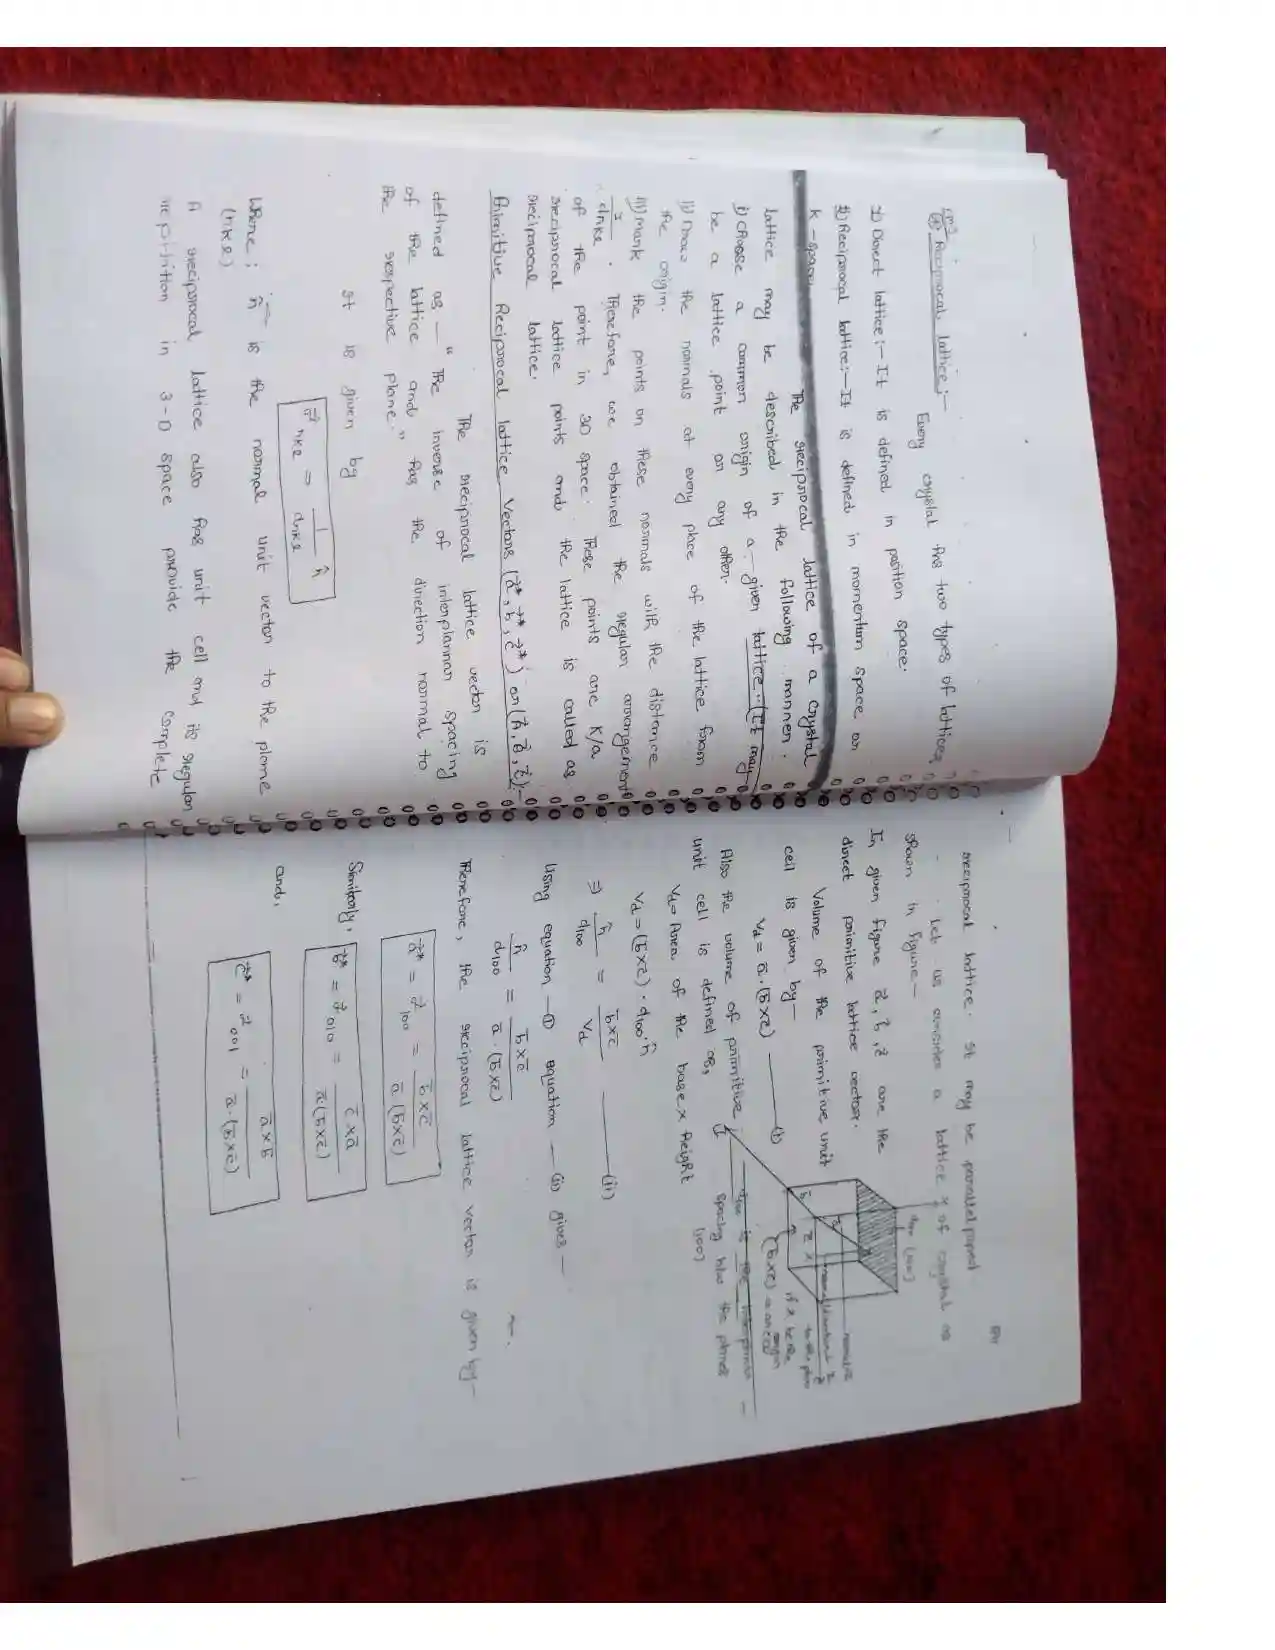 Reciprocal lattice:-
Every crystal has two types of lattices
1) Direct lattice:- It is defined in position space.
2) Reciprocal lattice:- It is defined in momentum space or
k-space.
The reciprocal lattice of a crystal
lattice may be described in the following manner.
i) Choose a common origin of a given lattice. (It may
be a lattice point or any other.
ii) Draw the normals at every place of the lattice from
the origin.
iii) Mark the points on these normals with the distance
1/dhkl . Therefore, we obtained the regular arrangement
of the point in 3D space. These points are K/a
reciprocal lattice points and the lattice is called as
reciprocal lattice.
Primitive Reciprocal lattice Vectors (a⃗*, b⃗*, c⃗*) or (A⃗, B⃗, C⃗):-
The reciprocal lattice vector is
defined as — "The inverse of interplannar spacing
of the lattice and has the direction normal to
the respective plane."
It is given by
hkl = 1/dhkl n̂
Where; n̂ is the normal unit vector to the plane
(hkl)
A reciprocal lattice also has unit cell and its regular
repitition in 3-D space provide the complete
reciprocal lattice. It may be parallelpiped
Let us consider a lattice of crystal as
shown in figure —
In given figure a⃗, b⃗, c⃗ are the
direct primitive lattice vector.
Volume of the primitive unit
cell is given by —
Vd = a⃗.(b⃗×c⃗) — (i)
Also the volume of primitive
unit cell is defined as,
Vd = Area of the base × height
Vd = (b⃗×c⃗) . d100 . n̂
⇒ n̂/d100 = b⃗×c⃗/Vd — (ii)
(b⃗×c⃗)
d100 is the
spacing b/w the planes
(100)
Using equation — (i) equation — (ii) gives —
n̂/d100 = b⃗×c⃗/a⃗.(b⃗×c⃗)
Therefore, the reciprocal lattice vector is given by —
a⃗* = 100 = b⃗×c⃗/a⃗(b⃗×c⃗)
Similarly, b⃗* = 010 = c⃗×a⃗/a⃗(b⃗×c⃗)
and, c⃗* = 001 = a⃗×b⃗/a⃗.(b⃗×c⃗)